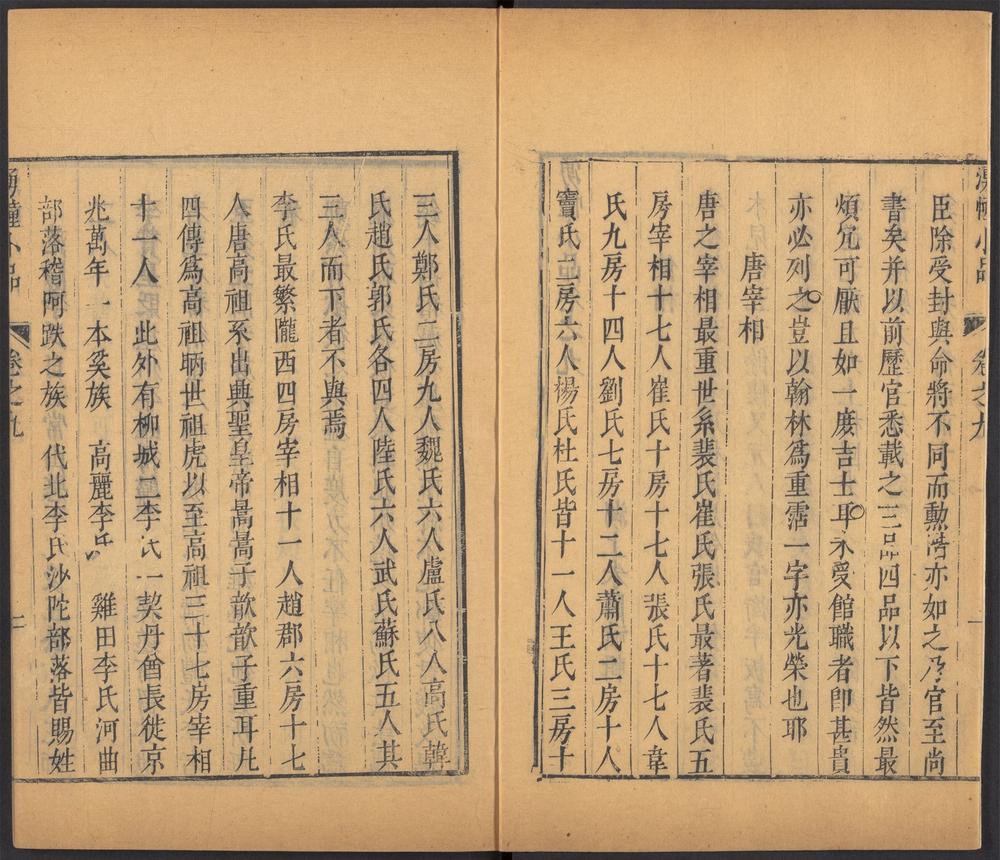 湧幢小品
卷之九
臣除受封與命將不同而勲誥亦如之乃官至尚
書矣并以前歷官悉載之三品四品以下皆然最
煩冗可厭且如一廣吉士耳未受館職者卽甚貴
亦必列之豈以翰林爲重霑一字亦光榮也耶
唐宰相
唐之宰相最重世系裴氏崔氏張氏最著裴氏五
房宰相十七人崔氏十房十七人張氏十七人韋
氏九房十四人劉氏七房十二人蕭氏二房十人
竇氏二房六人楊氏杜氏皆十一人王氏三房十
三人鄭氏二房九人魏氏六人盧氏八人高氏韓
氏趙氏郭氏各四人陸氏六人武氏蘇氏五人其
三人而下者不與焉
李氏最繁隴西四房宰相十一人趙郡六房十七
人唐高祖系出興聖皇帝暠暠子歆歆子重耳凡
四傳爲高祖昞世祖虎以至高祖三十七房宰相
十一人 此外有柳城二李氏一契丹酋長徙京
兆萬年一本奚族 高麗李氏 雞田李氏河曲
部落稽阿跌之族 代北李氏沙陀部落皆賜姓
湧幢小品
卷之九